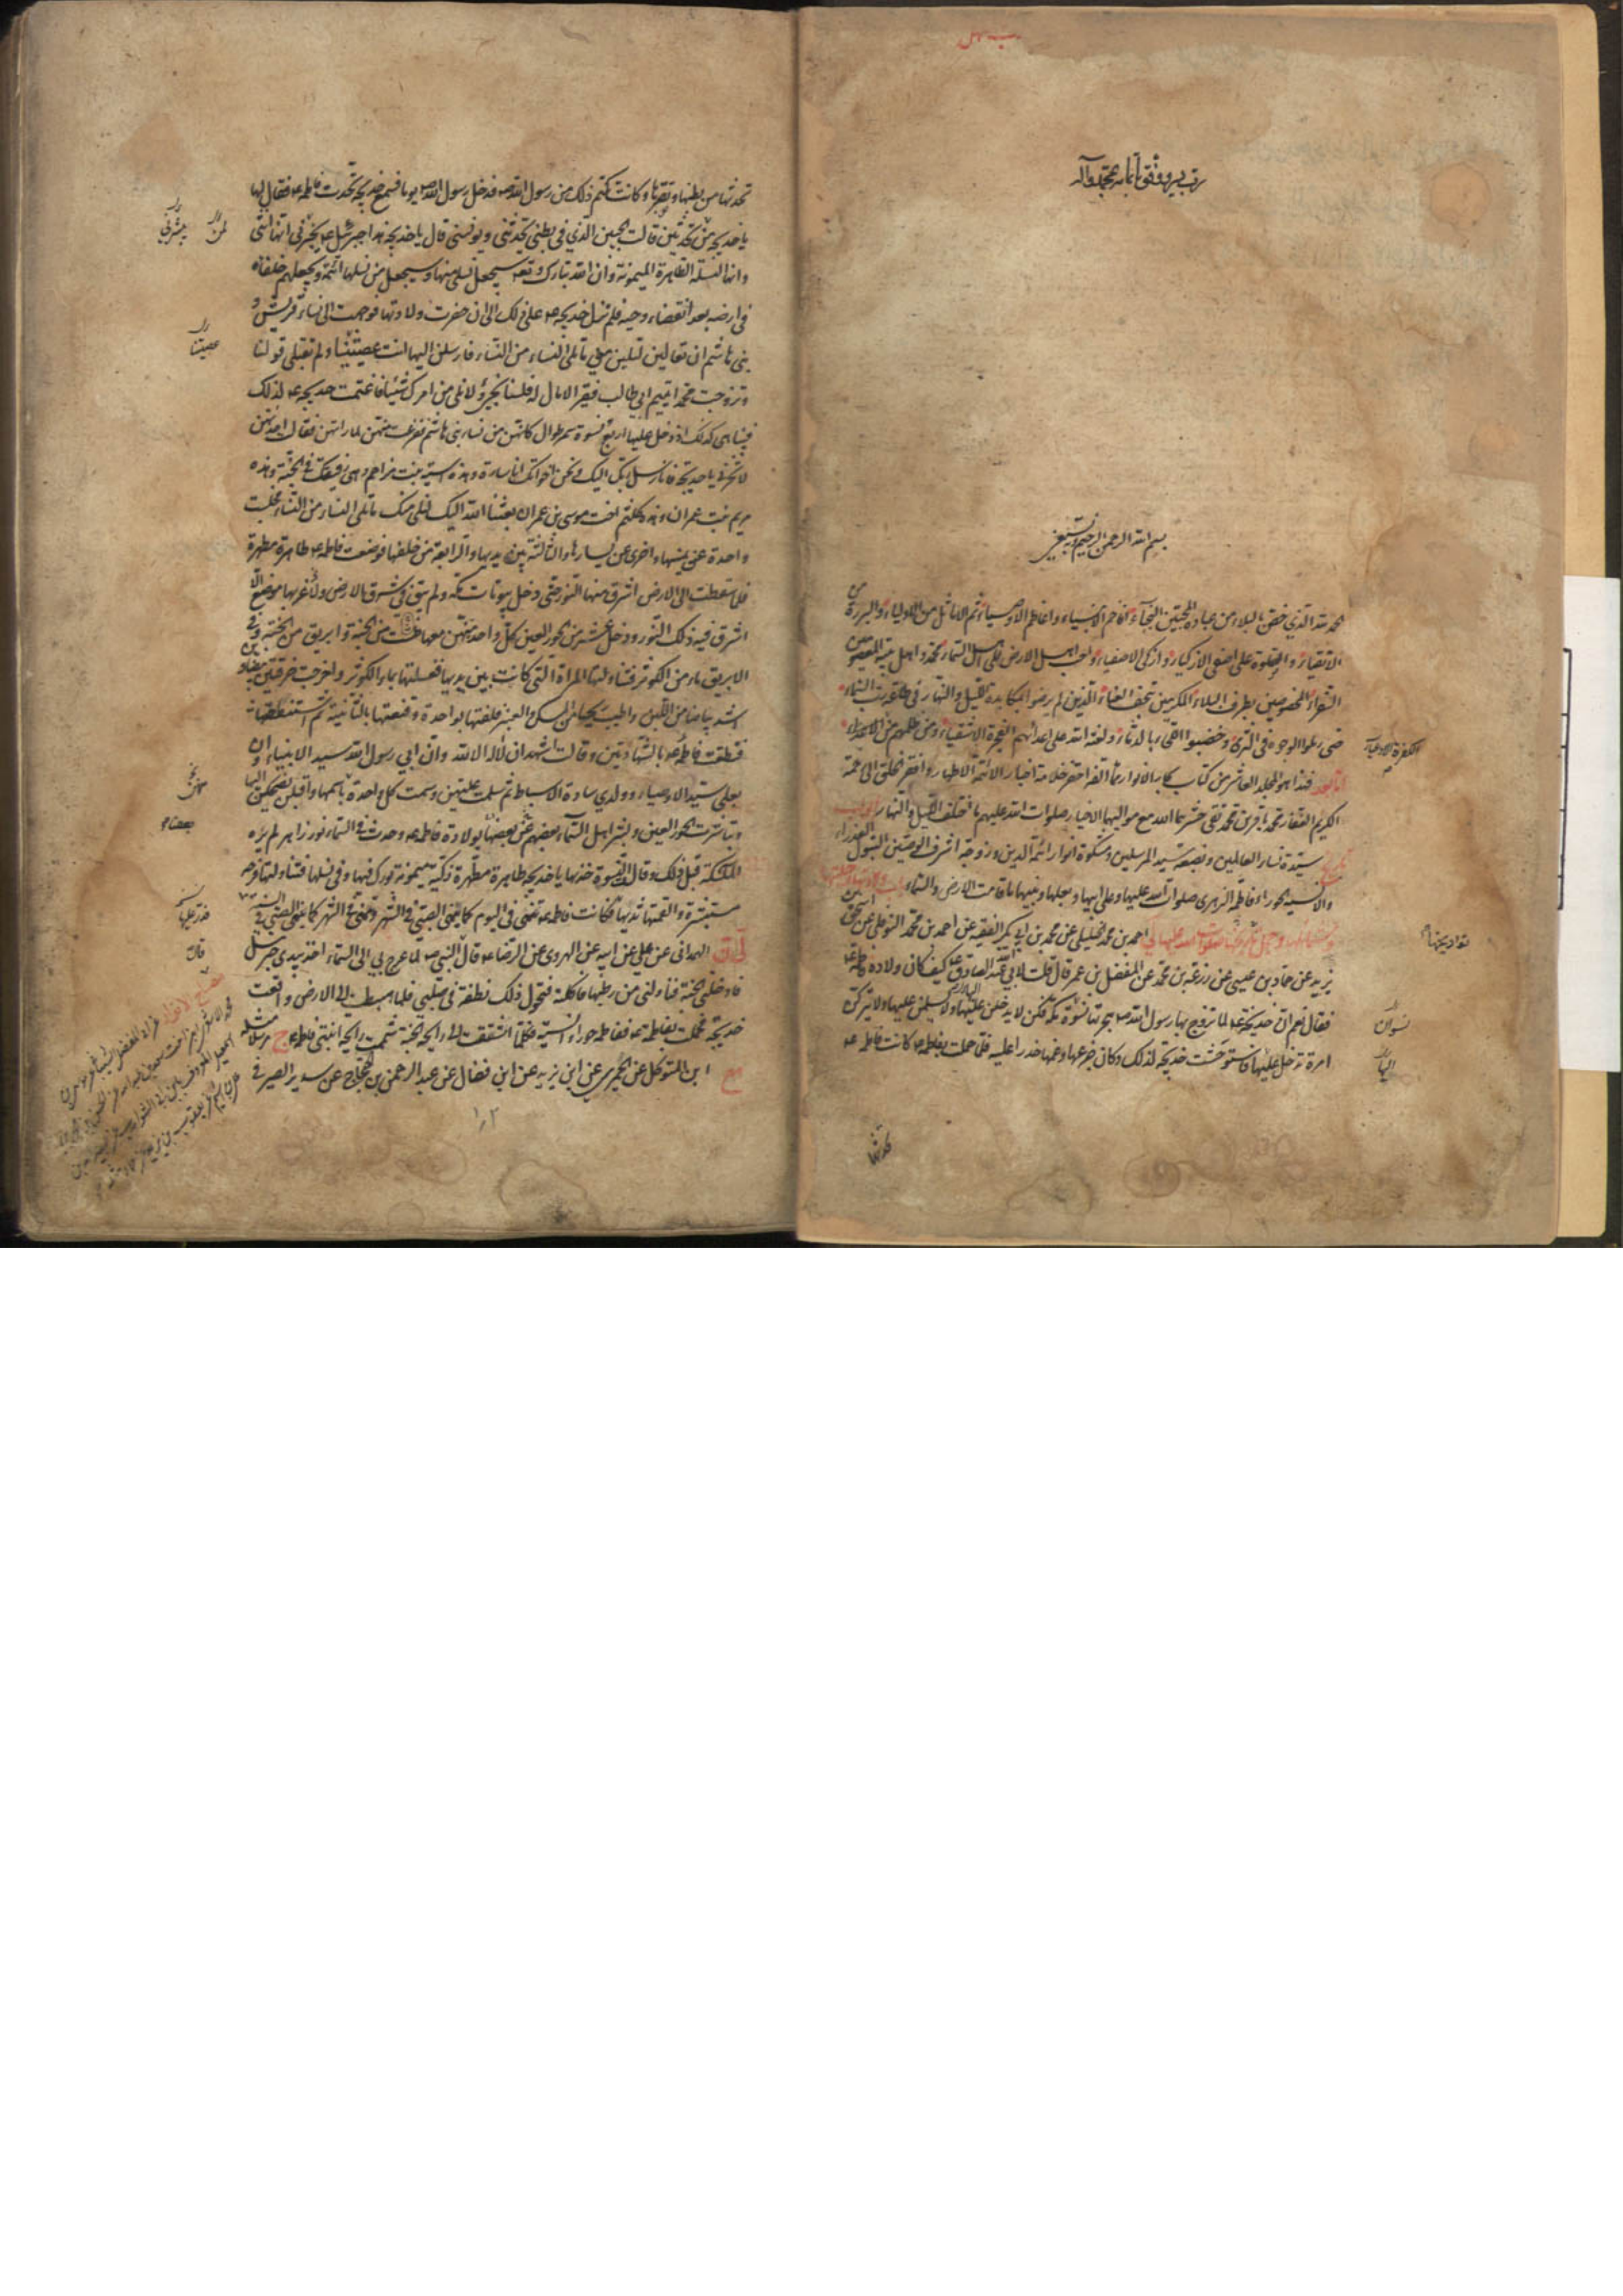 رب يسر ووفقني لاتمامه بمحمد وآله
بسم الله الرحمن الرحيم وبه نستعين
الحمد لله الذي خص بالبلاء من عباده المحبين النجباء افاخم الانبياء واعاظم الاوصياء ثم الاماثل من الاولياء والبررة من
الاتقياء والصلوة على اصفى الازكياء وازكى الاصفياء واحب اهل الارض الى اهل السماء محمد واهل بيته المعصومين
السفراء المخصوصين بطرف البلاء المكرمين بتحف العناء الذين لم يرضوا بمكابدة الليل والنهار في طاعة رب السماء
حتى رملوا الوجوه في الثرى وخضبوا اللحى بالدماء ولعنة الله على اعدائهم الفجرة الاشقياء ومن ظلمهم من
اما بعد فهذا هو المجلد العاشر من كتاب بحار الانوار مما الفه احقر خدمة اخبار الائمة الاطهار وافقر الخلق الى رحمة
الكريم الغفار محمد باقر بن محمد تقي حشرهما الله مع مواليهما الاخيار صلوات الله عليهم ما اختلف الليل والنهار ابواب
تاريخ سيدة نساء العالمين وبضعة سيد المرسلين ومشكوة انوار ائمة الدين وزوجة اشرف الوصيين البتول العذراء
والانسية الحوراء فاطمة الزهرى صلوات الله عليها وعلى ابيها وبعلها وبنيها ما قامت الارض والسماء باب ولادتها وحليتها
وشمائلها احمد بن محمد الخليلي عن محمد بن ابي بكر الفقيه عن احمد بن محمد النوفلي عن اسحق بن
يزيد عن حماد بن عيسى عن زرعة بن محمد عن المفضل بن عمر قال قلت لابي عبد الله الصادق كيف كان ولادة فاطمة
فقال نعم ان خديجة لما تزوج بها رسول الله هجرتها نسوة مكة فكن لا يدخلن عليها ولا يسلمن عليها ولا يتركن
امرءة تدخل عليها فاستوحشت خديجة لذلك وكان جزعها وغمها حذرا عليه فلما حملت بفاطمة كانت فاطمة
نسوان
تحدثها
تحدثها من بطنها وتصبرها وكانت تكتم ذلك من رسول الله فدخل رسول الله يوما فسمع خديجة تحدث فاطمة فقال لها
يا خديجة من تحدثين قالت الجنين الذي في بطني يحدثني ويونسني قال يا خديجة هذا جبرئيل يخبرني انها انثى
وانها النسلة الطاهرة الميمونة وان الله تبارك وتعالى سيجعل نسلي منها وسيجعل من نسلها ائمة ويجعلهم خلفاءه
في ارضه بعد انقضاء وحيه فلم تزل خديجة على ذلك الى ان حضرت ولادتها فوجهت الى نساء قريش و
بني هاشم ان تعالين لتلين مني ما تلي النساء من النساء فارسلن اليها انت عصيتنا ولم تقبلي قولنا
وتزوجت محمدا يتيم ابي طالب فقيرا لا مال له فلسنا نجيء ولا نلي من امرك شيئا فاغتمت خديجة لذلك
فبينا هي كذلك اذ دخل عليها اربع نسوة سمر طوال كانهن من نساء بني هاشم ففزعت منهن لما راتهن فقالت احديهن
لا تحزني يا خديجة فانا رسل ربك اليك ونحن اخواتك انا سارة وهذه اسية بنت مزاحم وهي رفيقتك في الجنة وهذه
مريم بنت عمران وهذه كلثم اخت موسى بن عمران بعثنا الله اليك لنلي منك ما تلي النساء من النساء فجلست
واحدة عن يمينها واخرى عن يسارها والثالثة بين يديها والرابعة من خلفها فوضعت فاطمة طاهرة مطهرة
فلما سقطت الى الارض اشرق منها النور حتى دخل بيوتات مكة ولم يبق في شرق الارض ولا غربها موضع الا
اشرق فيه ذلك النور ودخل عشر من الحور العين كل واحدة منهن معها طست من الجنة وابريق من الجنة وفي
الابريق ماء من الكوثر فتناولتها المراة التي كانت بين يديها فغسلتها بماء الكوثر واخرجت خرقتين بيضاوين
اشد بياضا من اللبن واطيب ريحا من المسك والعنبر فلفتها بواحدة وقنعتها بالثانية ثم استنطقتها
فنطقت فاطمة بالشهادتين وقالت اشهد ان لا اله الا الله وان ابي رسول الله سيد الانبياء وان
بعلي سيد الاوصياء وولدي سادة الاسباط ثم سلمت عليهن وسمت كل واحدة باسمها واقبلن يضحكن اليها
وتباشرت الحور العين وبشر اهل السماء بعضهم بعضا بولادة فاطمة وحدث في السماء نور زاهر لم تره
الملئكة قبل ذلك وقالت النسوة خذيها يا خديجة طاهرة مطهرة زكية ميمونة بورك فيها وفي نسلها فتناولتها فرحة
مستبشرة والقمتها ثديها فكانت فاطمة تنمي في اليوم كما ينمي الصبي في الشهر وتنمي في الشهر كما ينمي الصبي في السنة
الهمداني عن علي عن ابيه عن الهروي عن الرضا قال قال النبي لما عرج بي الى السماء اخذ بيدي جبرئيل
فادخلني الجنة فناولني من رطبها فاكلته فتحول ذلك نطفة في صلبي فلما هبطت الى الارض واقعت
خديجة فحملت بفاطمة ففاطمة حوراء انسية فكلما اشتقت الى رايحة الجنة شممت رايحة ابنتي فاطمة ج مرسلا مثله
مع ابن المتوكل عن الحميري عن ابن يزيد عن ابن فضال عن عبد الرحمن بن الحجاج عن سدير الصيرفي
عصيتنا